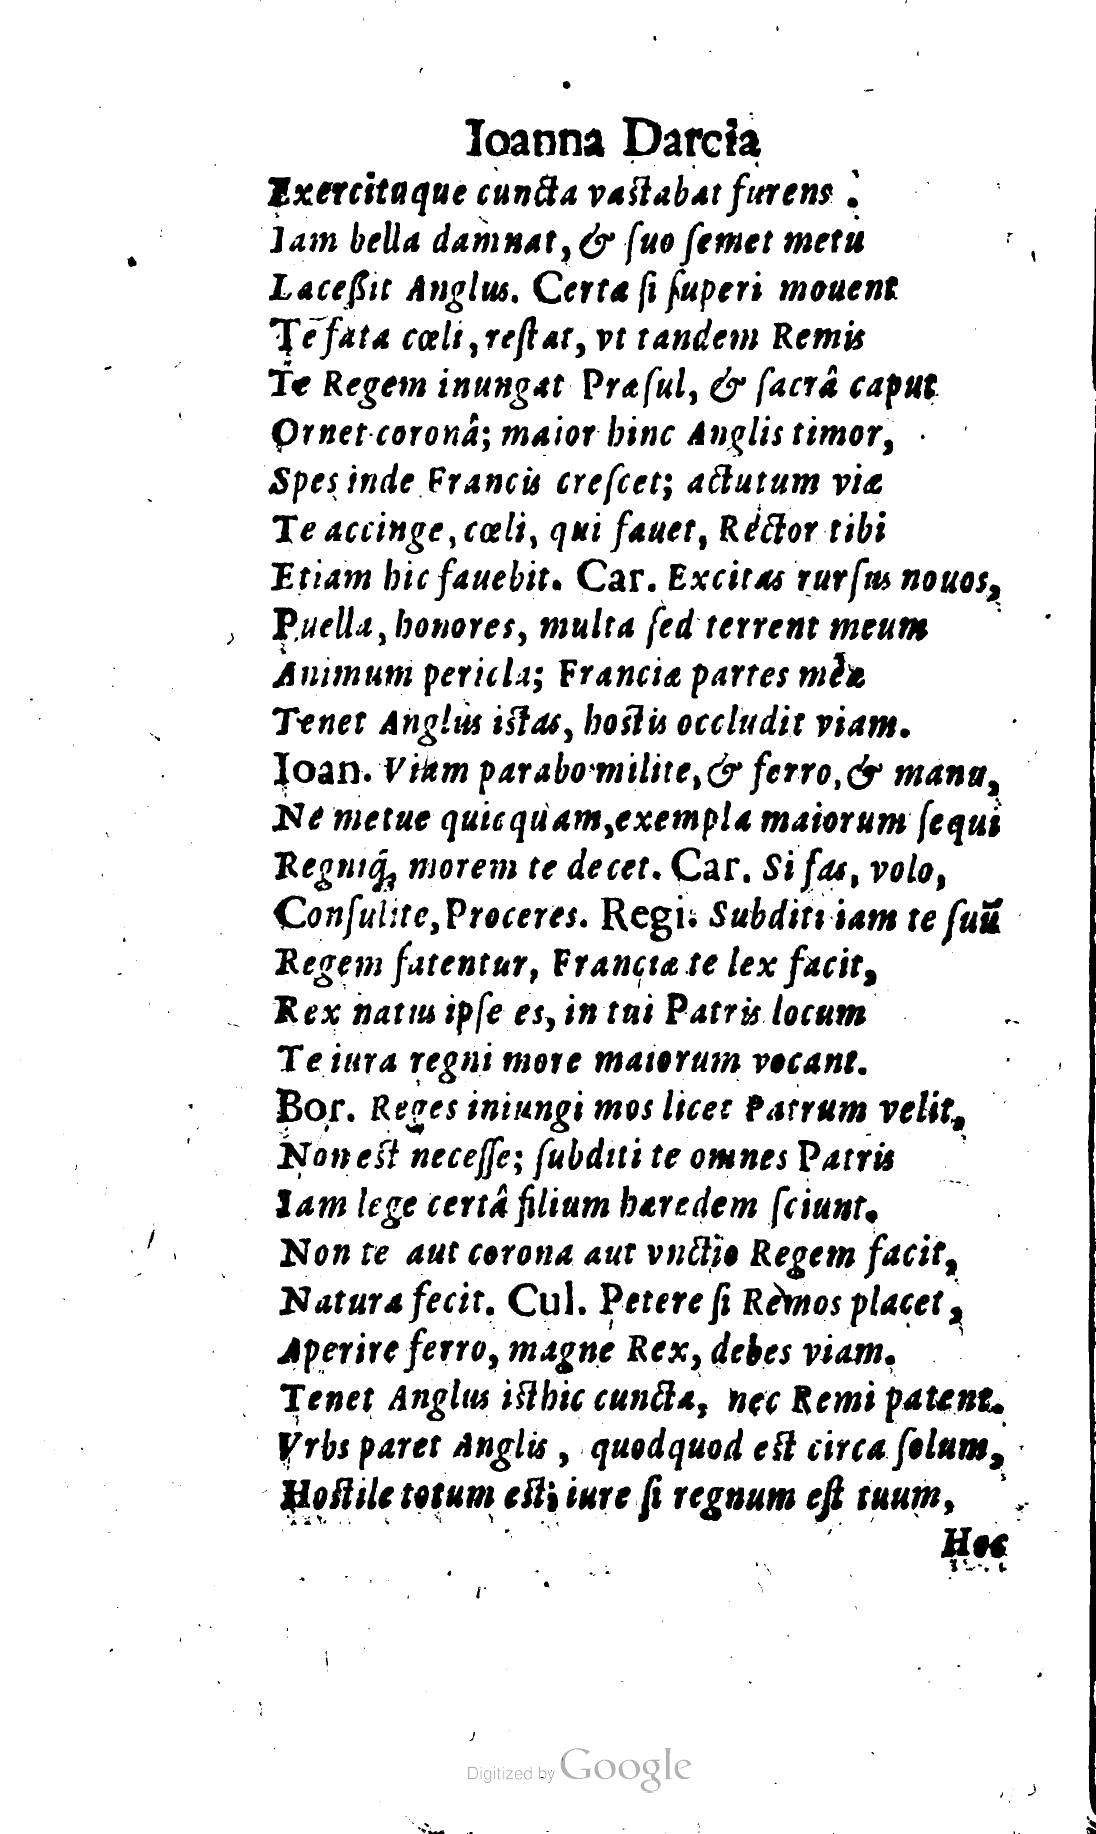 Ioanna Darcia
Exercituque cuncta vastabat furens:
Iam bella damnat, & suo semet metu
Lacessit Anglus. Certa si superi mouent
Te fata cœli, restat, vt tandem Remis
Te Regem inungat Præsul, & sacrâ caput
Ornet coronâ; maior hinc Anglis timor,
Spes inde Francis crescet; actutum viæ
Te accinge, cœli, qui fauet, Rector tibi
Etiam hic fauebit. Car. Excitas rursus nouos,
Puella, honores, multa sed terrent meum
Animum pericla; Franciæ partes meæ
Tenet Anglus istas, hostis occludit viam.
Ioan. Viam parabo milite, & ferro, & manu,
Ne metue quicquam, exempla maiorum sequi
Regniq́; morem te decet. Car. Si fas, volo,
Consulite, Proceres. Regi. Subditi iam te suũ
Regem fatentur, Franciæ te lex facit,
Rex natus ipse es, in tui Patris locum
Te iura regni more maiorum vocant.
Bor. Reges iniungi mos licet Patrum velit,
Non est necesse; subditi te omnes Patris
Iam lege certâ filium hæredem sciunt.
Non te aut corona aut vnctio Regem facit,
Natura fecit. Cul. Petere si Remos placet,
Aperire ferro, magne Rex, debes viam.
Tenet Anglus isthic cuncta, nec Remi patent.
Vrbs paret Anglis, quodquod est circa solum,
Hostile totum est; iure si regnum est tuum,
Hoc
Digitized by Google